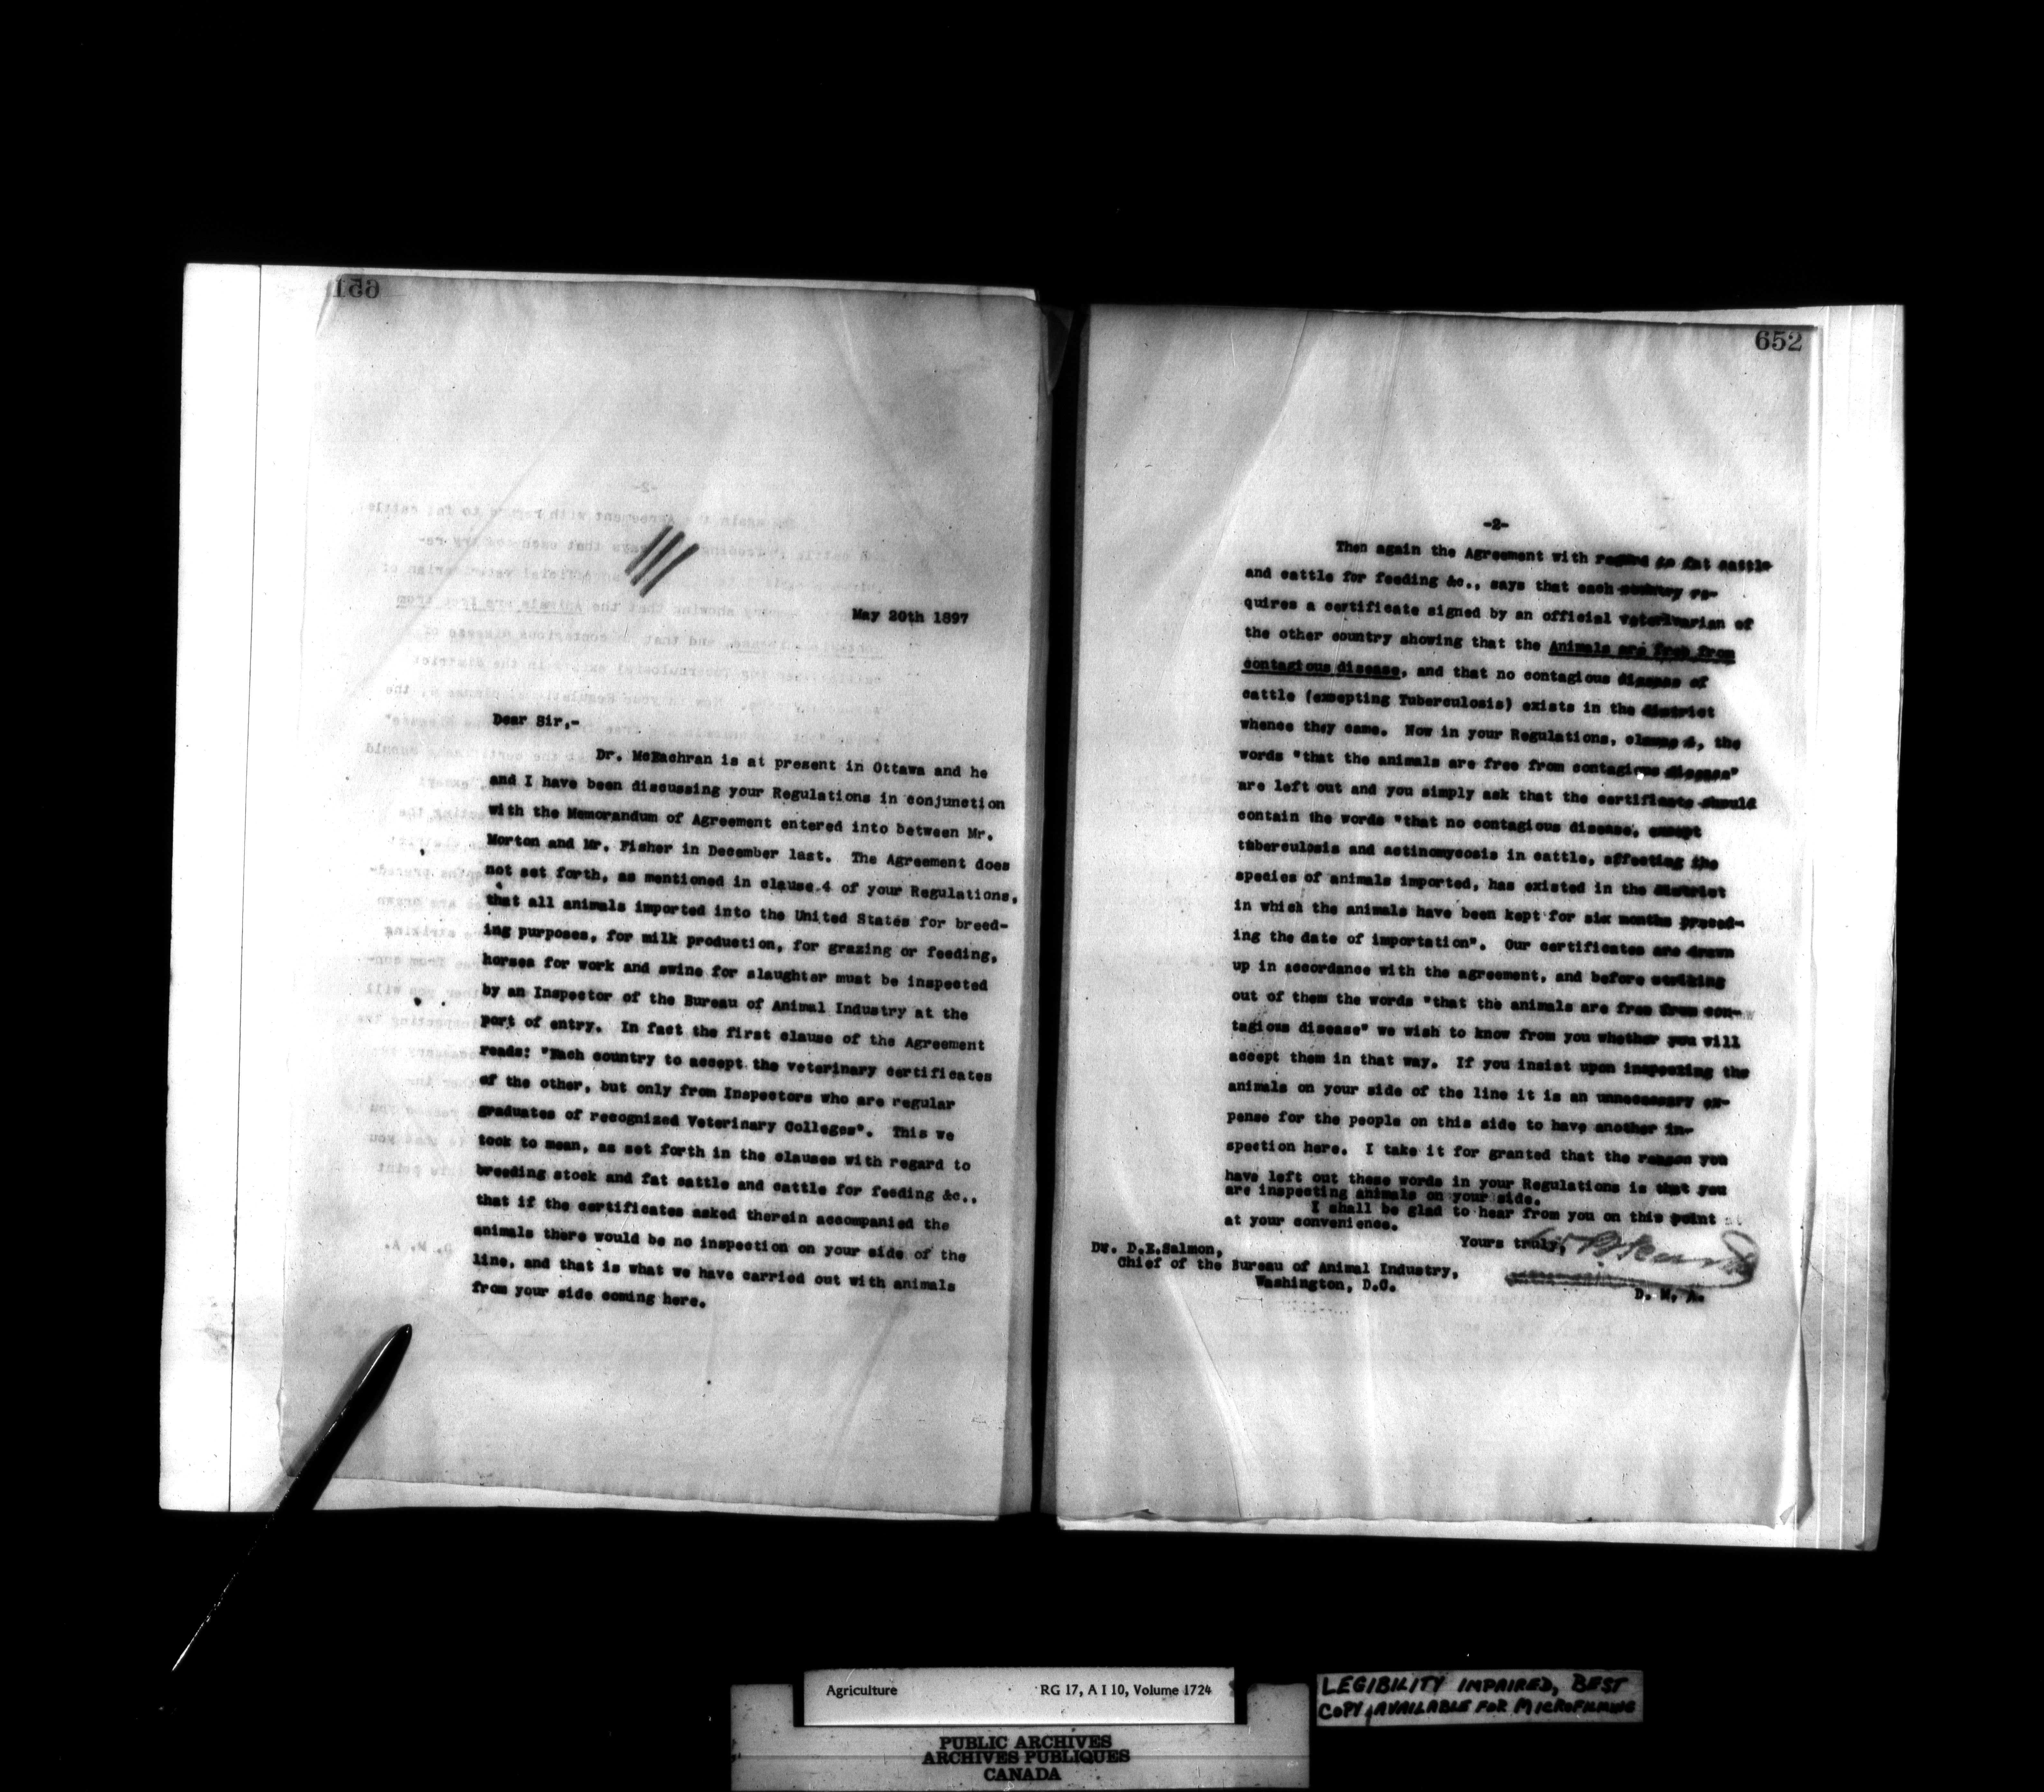 651
May 20th 1897
Dear Sir,-
Dr. McEachran is at present in Ottawa and he
and I have been discussing your Regulations in conjunction
with the Memorandum of Agreement entered into between Mr.
Morton and Mr. Fisher in December last. The Agreement does
not set forth, as mentioned in clause 4 of your Regulations,
that all animals imported into the United States for breed-
ing purposes, for milk production, for grazing or feeding,
horses for work and swine for slaughter must be inspected
by an Inspector of the Bureau of Animal Industry at the
port of entry. In fact the first clause of the Agreement
reads: "Each country to accept the veterinary certificates
of the other, but only from Inspectors who are regular
graduates of recognized Veterinary Colleges". This we
took to mean, as set forth in the clauses with regard to
breeding stock and fat cattle and cattle for feeding &c.,
that if the certificates asked therein accompanied the
animals there would be no inspection on your side of the
line, and that is what we have carried out with animals
from your side coming here.
652
-2-
Then again the Agreement with regard to fat cattle
and cattle for feeding &c., says that each country re-
quires a certificate signed by an official veterinarian of
the other country showing that the Animals are free from
contagious disease, and that no contagious disease of
cattle (excepting Tuberculosis) exists in the district
whence they came. Now in your Regulations, clause, the
words "that the animals are free from contagious disease"
are left out and you simply ask that the certificate should
contain the words "that no contagious disease, except
tuberculosis and actinomycosis in cattle, affecting the
species of animals imported, has existed in the district
in which the animals have been kept for six months preced-
ing the date of importation". Our certificates are drawn
up in accordance with the agreement, and before striking
out of them the words "that the animals are free from con-
tagious disease" we wish to know from you whether you will
accept them in that way. If you insist upon inspecting the
animals on your side of the line it is an unnecessary ex-
pense for the people on this side to have another in-
spection here. I take it for granted that the reason you
have left out these words in your Regulations is that you
are inspecting animals on your side.
I shall be glad to hear from you on this point
at your convenience.
Yours truly,
Dr. D.E.Salmon,
Chief of the Bureau of Animal Industry,
Washington, D.C.
D. M. A.
Agriculture RG 17, A I 10, Volume 1724
LEGIBILITY IMPAIRED, BEST
COPY AVAILABLE FOR MICROFILMING
PUBLIC ARCHIVES
ARCHIVES PUBLIQUES
CANADA